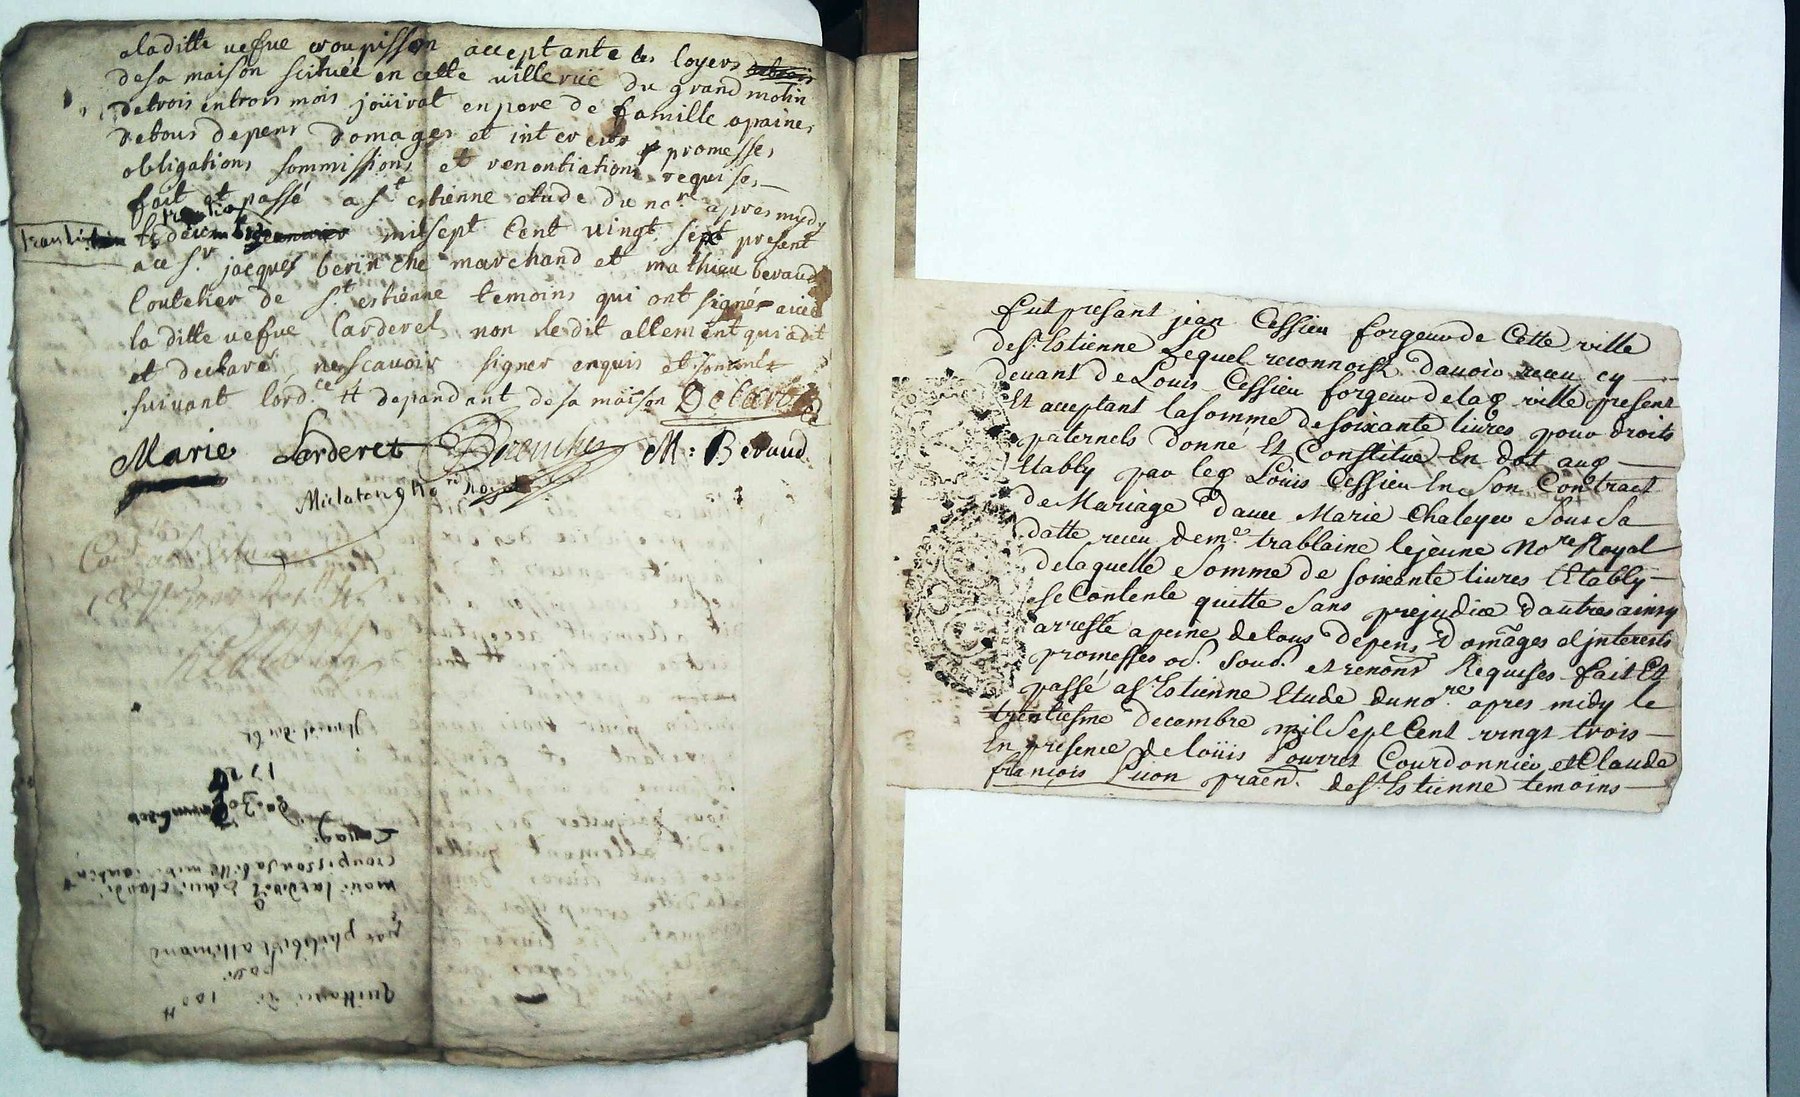 aladitte vefue croupisson acceptante les loyers
desa maison scituée en cette ville rüe du grand molin
detrois entrois mois joüirat en pere de famille apaine,
detous depens domages et interests promesses
obligations sommissions et renontiations requises
fait et passé a st estienne etude du nore apres mydy
trentie
le decembre milsept cent vingt sept present
ace sr jacques berinche marchand et mathieu beraud
Coutelier de st estienne temoins qui ont signé avec
la ditte vefue larderet non ledit allement qui adit
et declaré nescavoir signer enquis et sommé
suivant lordce # depandant desa maison
Marie Larderet M: Beraud
1727
du 30
Croupisson
marie larderet
par philibert allemand
quittance de 100#
Fut presant jean Cessieu forgeur de Cette ville
de St Estienne Lequel reconnoist davoir receu cy
devant de Louis Cessieu forgeur delad ville present
Et acceptant la somme de soixante livres pour droits
paternels donne Et Constitué En dot aud
Etably par led Louis Cessieu En son Contract
de Mariage avec Marie Chaleyer sous sa
datte receu deme trablaine lejeune Nore Royal
de laquelle somme de soixante livres lEtably
se Contente quitte sans prejudice dautres ainsy
arresté apeine de tous depens Domages et jnterests
promesses ob. soub. et renons Requises fait Et
passé a St Estienne Etude dunore apres midy le
trentiesme decembre mil sept Cent vingt trois
En presence de loüis Pourret Courdonnier et Claude
françois praen. de St Estienne temoins